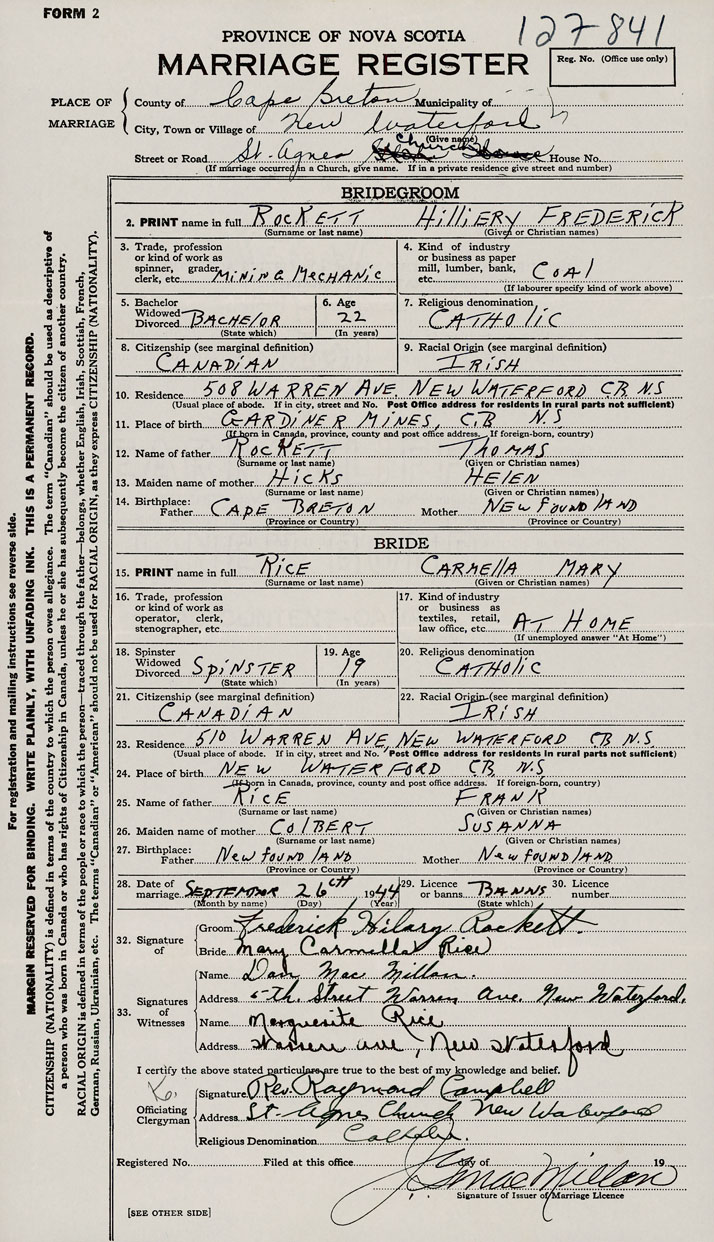 FORM 2
127841
PROVINCE OF NOVA SCOTIA
MARRIAGE REGISTER
Reg. No. (Office use only)
PLACE OF MARRIAGE
County of Cape Breton Municipality of
City, Town or Village of New Waterford
(Give name)
Street or Road St. Agnes Church House No.
(If marriage occurred in a Church, give name. If in a private residence give street and number)
BRIDEGROOM
2. PRINT name in full ROCKETT HILLIERY FREDERICK
(Surname or last name) (Given or Christian names)
3. Trade, profession or kind of work as spinner, grader, clerk, etc. MINING MECHANIC
4. Kind of industry or business as paper mill, lumber, bank, etc. COAl
(If labourer specify kind of work above)
5. Bachelor Widowed Divorced BACHElOR (State which)
6. Age 22 (In years)
7. Religious denomination CATHOlIC
8. Citizenship (see marginal definition) CANADIAN
9. Racial Origin (see marginal definition) IRISH
10. Residence 508 WARREN AVE, NEW WATERFORD CB NS
(Usual place of abode. If in city, street and No. Post Office address for residents in rural parts not sufficient)
11. Place of birth GARDINER MINES, C.B N.S
(If born in Canada, province, county and post office address. If foreign-born, country)
12. Name of father ROCKETT THOMAS
(Surname or last name) (Given or Christian names)
13. Maiden name of mother HICKS HELEN
(Surname or last name) (Given or Christian names)
14. Birthplace: Father CAPE BRETON Mother NEWFOUNDlAND
(Province or Country) (Province or Country)
BRIDE
15. PRINT name in full RICE CARMEllA MARY
(Surname or last name) (Given or Christian names)
16. Trade, profession or kind of work as operator, clerk, stenographer, etc.
17. Kind of industry or business as textiles, retail, law office, etc. AT HOME
(If unemployed answer "At Home")
18. Spinster Widowed Divorced SPINSTER (State which)
19. Age 19 (In years)
20. Religious denomination CATHOlIC
21. Citizenship (see marginal definition) CANADIAN
22. Racial Origin (see marginal definition) IRISH
23. Residence 510 WARREN AVE NEW WATERFORD CB N.S.
(Usual place of abode. If in city, street and No. Post Office address for residents in rural parts not sufficient)
24. Place of birth NEW WATERFORD C.B. N.S
(If born in Canada, province, county and post office address. If foreign-born, country)
25. Name of father RICE FRANK
(Surname or last name) (Given or Christian names)
26. Maiden name of mother COLBERT SUSANNA
(Surname or last name) (Given or Christian names)
27. Birthplace: Father NEWFOUNDlAND Mother NEWFOUNDlAND
(Province or Country) (Province or Country)
28. Date of marriage SEPTEMBER 26th 1944
(Month by name) (Day) (Year)
29. Licence or banns BANNS (State which)
30. Licence number
32. Signature of
Groom Frederick Hilary Rockett.
Bride Mary Carmella Rice
33. Signatures of Witnesses
Name Dan Mac Millan.
Address 5-th. Street Warren Ave. New Waterford.
Name Marguerite Rice
Address Warren ave, New Waterford
I certify the above stated particulars are true to the best of my knowledge and belief.
Officiating Clergyman
Signature Rev. Raymond Campbell
Address St. Agnes Church New Waterford
Religious Denomination Catholic.
Registered No. Filed at this office day of 19
MacMillan
Signature of Issuer of Marriage Licence
[SEE OTHER SIDE]
For registration and mailing instructions see reverse side.
MARGIN RESERVED FOR BINDING. WRITE PLAINLY, WITH UNFADING INK. THIS IS A PERMANENT RECORD.
CITIZENSHIP (NATIONALITY) is defined in terms of the country to which the person owes allegiance. The term "Canadian" should be used as descriptive of
a person who was born in Canada or who has rights of Citizenship in Canada, unless he or she has subsequently become the citizen of another country.
RACIAL ORIGIN is defined in terms of the people or race to which the person—traced through the father—belongs, whether English, Irish, Scottish, French,
German, Russian, Ukrainian, etc. The terms "Canadian" or "American" should not be used for RACIAL ORIGIN, as they express CITIZENSHIP (NATIONALITY).